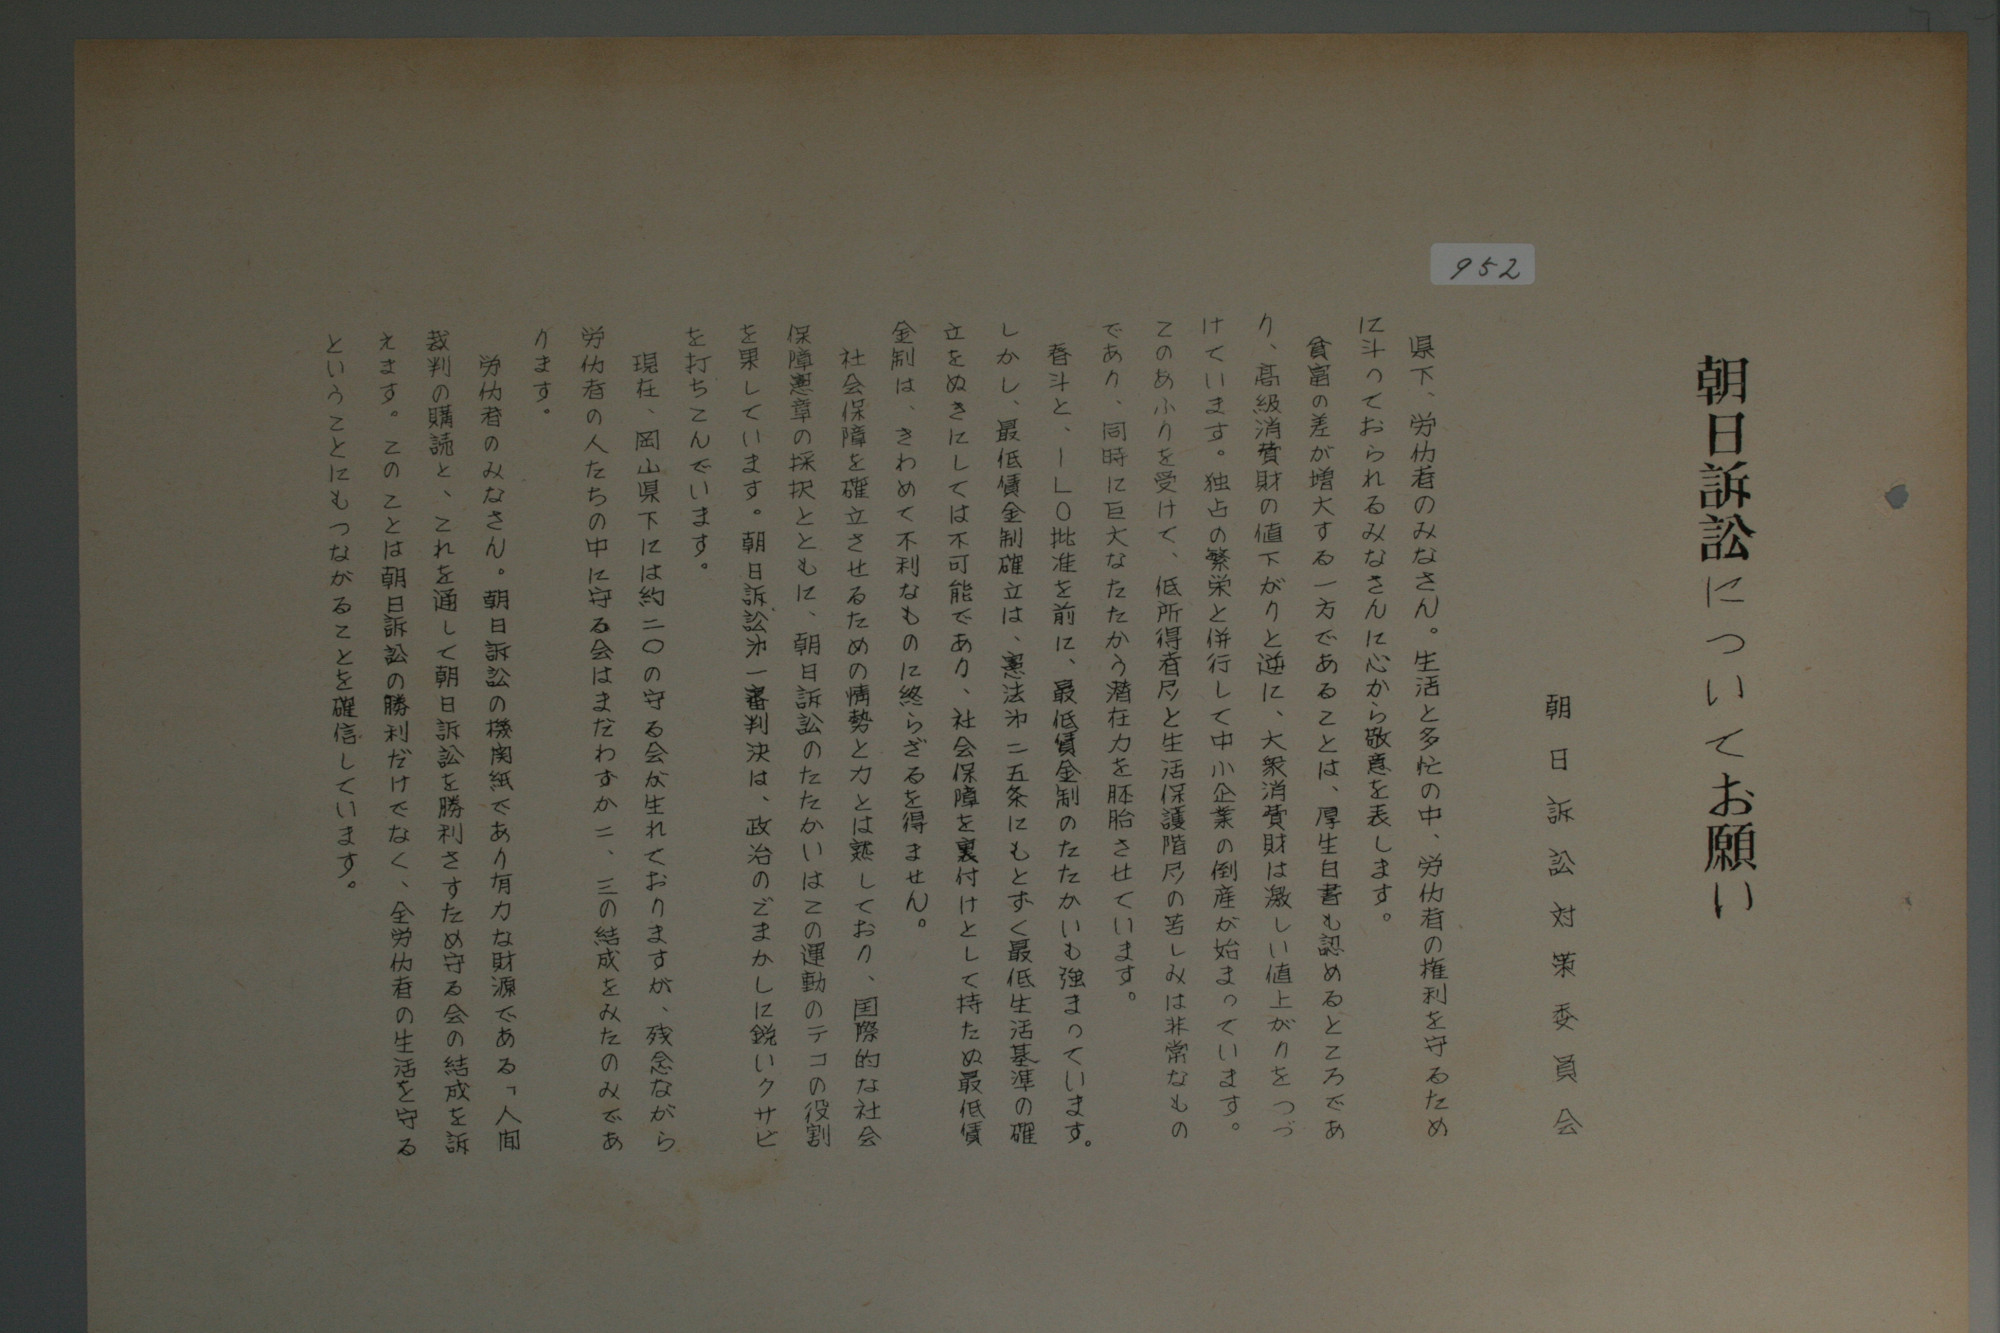 952
朝日訴訟についてお願い
朝日訴訟対策委員会
県下、労仂者のみなさん。生活と多忙の中、労仂者の権利を守るため
に斗っておられるみなさんに心から敬意を表します。
貧富の差が増大する一方であることは、厚生白書も認めるところであ
り、高級消費財の値下がりと逆に、大衆消費財は激しい値上がりをつづ
けています。独占の繁栄と併行して中小企業の倒産が始まっています。
このあふりを受けて、低所得者層と生活保護階層の苦しみは非常なもの
であり、同時に巨大なたたかう潜在力を胚胎させています。
春斗と、ILO批准を前に、最低賃金制のたたかいも強まっています。
しかし、最低賃金制確立は、憲法㐧二五条にもとずく最低生活基準の確
立をぬきにしては不可能であり、社会保障を裏付けとして持たぬ最低賃
金制は、きわめて不利なものに終らざるを得ません。
社会保障を確立させるための情勢と力とは熟しており、国際的な社会
保障憲章の採択とともに、朝日訴訟のたたかいはこの運動のテコの役割
を果しています。朝日訴訟㐧一審判決は、政治のごまかしに鋭いクサビ
を打ちこんでいます。
現在、岡山県下には約二〇の守る会が生れておりますが、残念ながら
労仂者の人たちの中に守る会はまだわずか二、三の結成をみたのみであ
ります。
労仂者のみなさん。朝日訴訟の機関紙であり有力な財源である「人間
裁判の購読と、これを通して朝日訴訟を勝利さすため守る会の結成を訴
えます。このことは朝日訴訟の勝利だけでなく、全労仂者の生活を守る
ということにもつながることを確信しています。